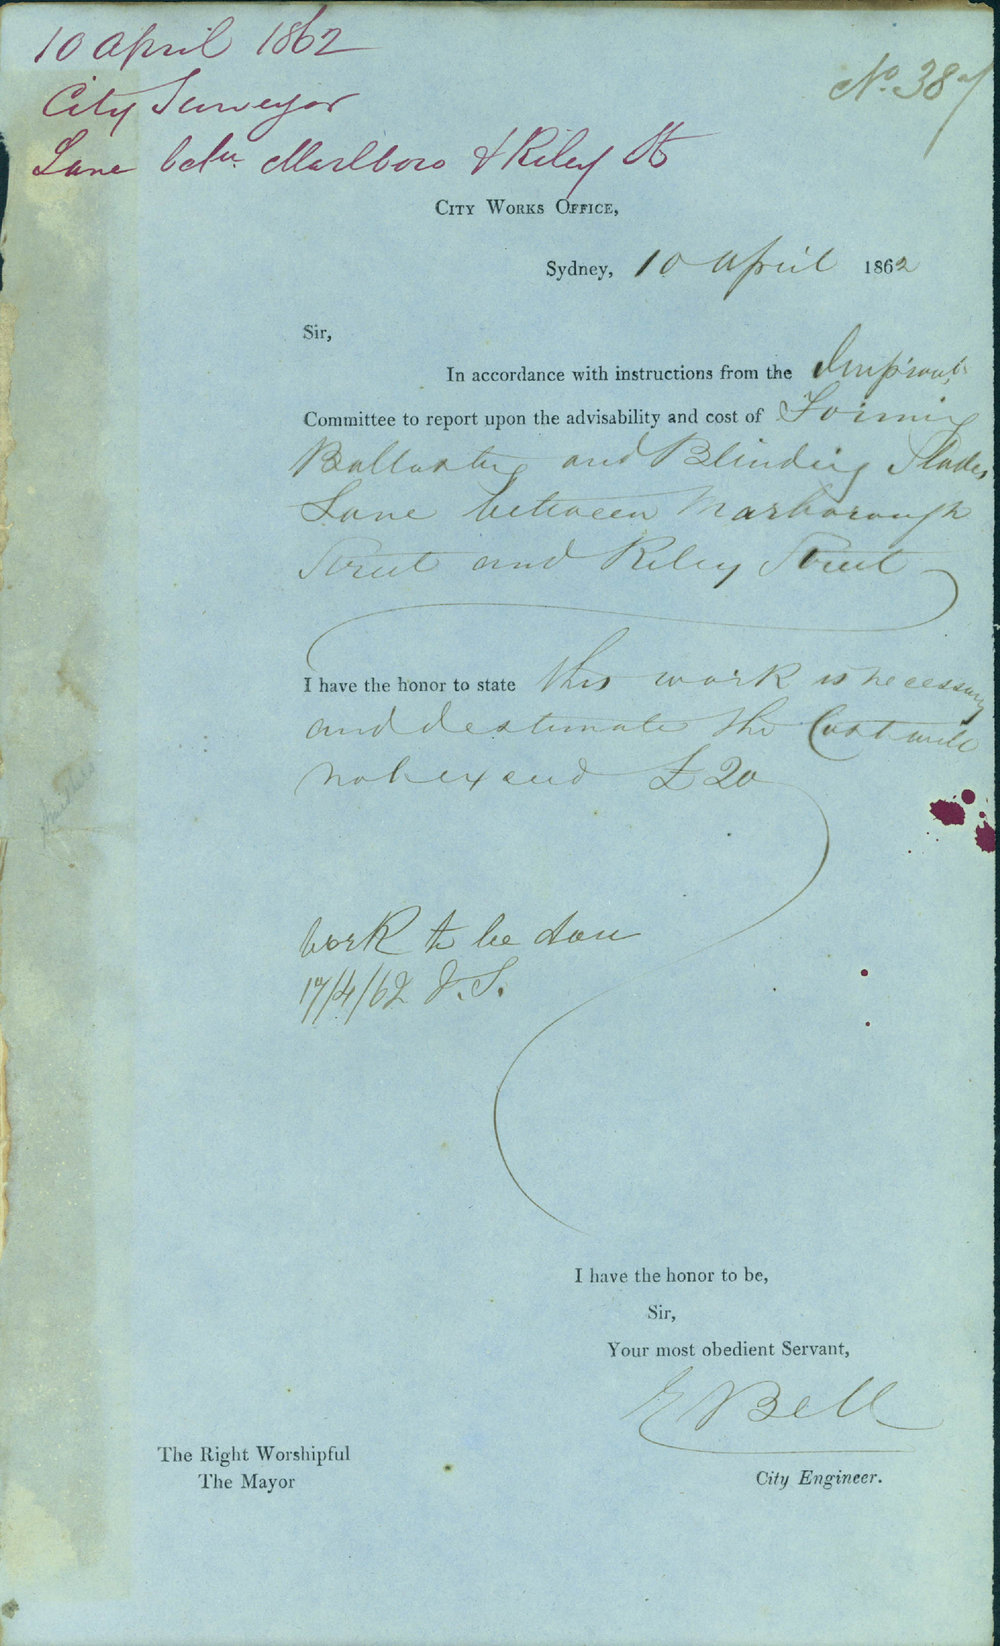 10 April 1862
City Surveyor
Lane betn. Marlboro & Riley St
No. 387
City Works Office,
Sydney, 10 April 1862
Sir,
In accordance with instructions from the Improvt.
Committee to report upon the advisability and cost of Forming
Ballasting and Blinding Slades
Lane between Marborough
Street and Riley Street
I have the honor to state this work is necessary
and I estimate the Cost will
not exceed £20
Work to be done
17/4/62 J.S.
I have the honor to be,
Sir,
Your most obedient Servant,
E Bell
City Engineer.
The Right Worshipful
The Mayor